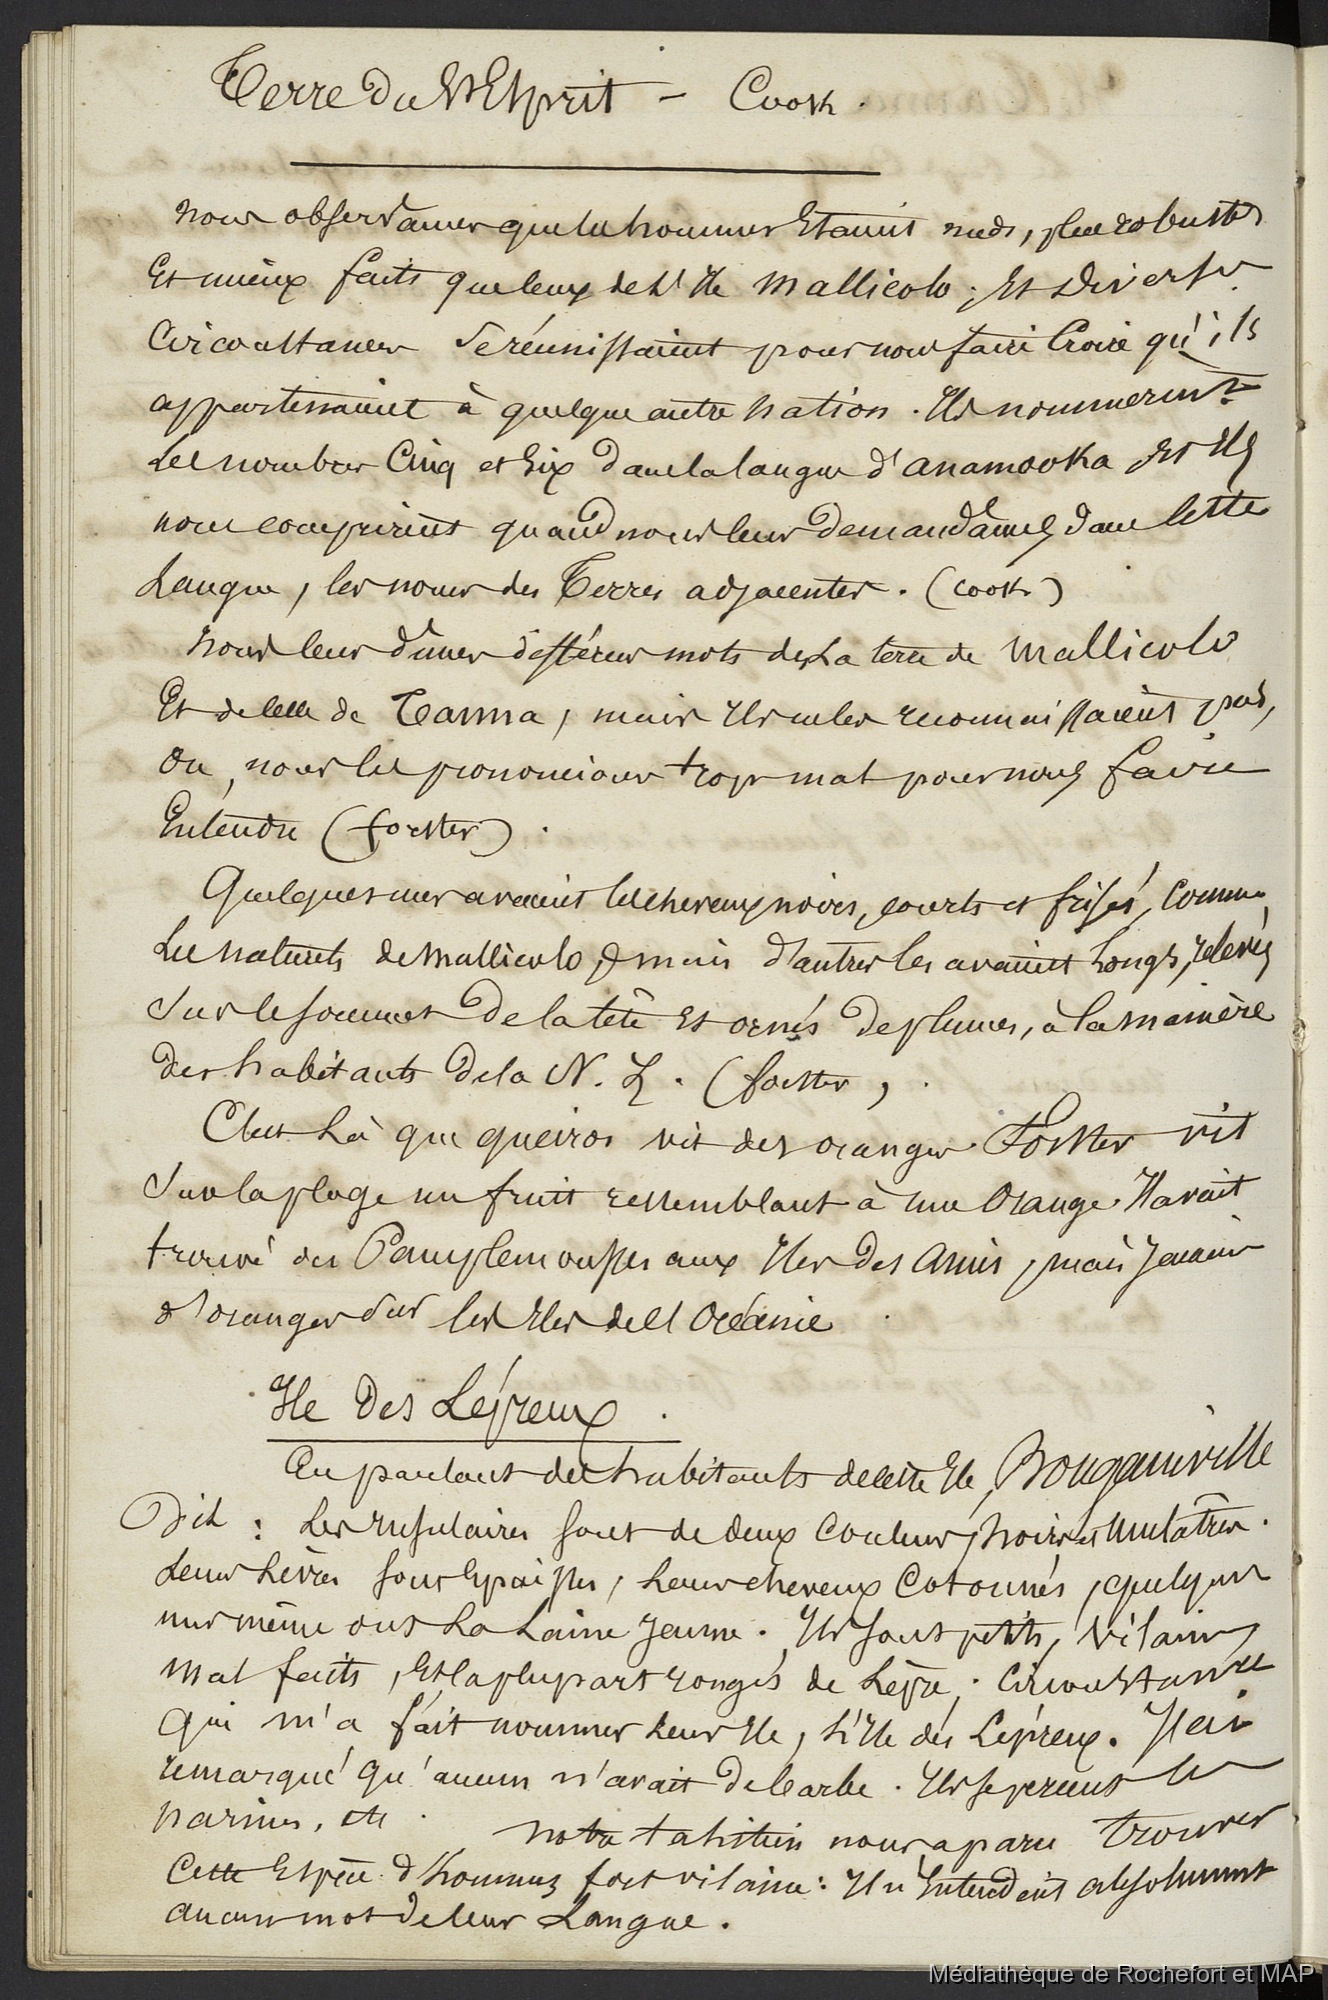 Terre du St Esprit - Cook.
nous observames que les hommes Etaient nuds, plus robustes
Et mieux faits que ceux de L'Ile Mallicolo; Et diverses
Circonstances se réunissaient pour nous faire Croire qu'ils
appartenaient à quelque autre nation. Ils nommerent
Les nombres Cinq et Six dans la langue d'anamooka Et Ils
nous comprirent quand nous leur Demandâmes dans Cette
Langue, les noms des Terres adjacentes. (Cook)
nous leur dimes differens mots de La terre de Mallicolo
Et de Celle de Tanna, mais Ils ne les reconnaissaient pas,
ou, nous les prononcions trop mal pour nous faire
Entendre (forster).
Quelques uns avaient les cheveux noirs, courts et frisés, Comme
Les naturels de Mallicolo, mais d'autres les avaient Longs, relevés
Sur le sommet De la tête Et ornés De plumes, à la manière
des habitants de la N. Z. (forster).
C'est Là que queiros vit des oranges. Forster vit
Sur la plage un fruit ressemblant à une Orange. Il avait
trouvé des Pamplemousses aux Iles des Amis, mais jamais
d'oranges sur les Iles de l'Océanie.
Ile Des Lépreux.
En parlant des habitants de cette Ile, Bougainville
Dit : Les Insulaires sont de deux Couleurs, noirs et Mulâtres.
Leurs Lèvres sont Epaisses, Leurs cheveux Cotonnés, quelques
uns même ont La Laine Jaune. Ils sont petits, Vilains,
Mal faits, Et la plupart rongés de Lèpre; Circonstance
Qui m'a fait nommer Leur Ile, L'Ile des Lépreux. J'ai
remarqué qu'aucun n'avait De barbe. Ils se percent les
narines, etc. notre tahitien nous a paru trouver
Cette Espèce d'hommes fort vilaine: Il n'Entendait absolument
aucun mot De leur Langue.
Médiathèque de Rochefort et MAP